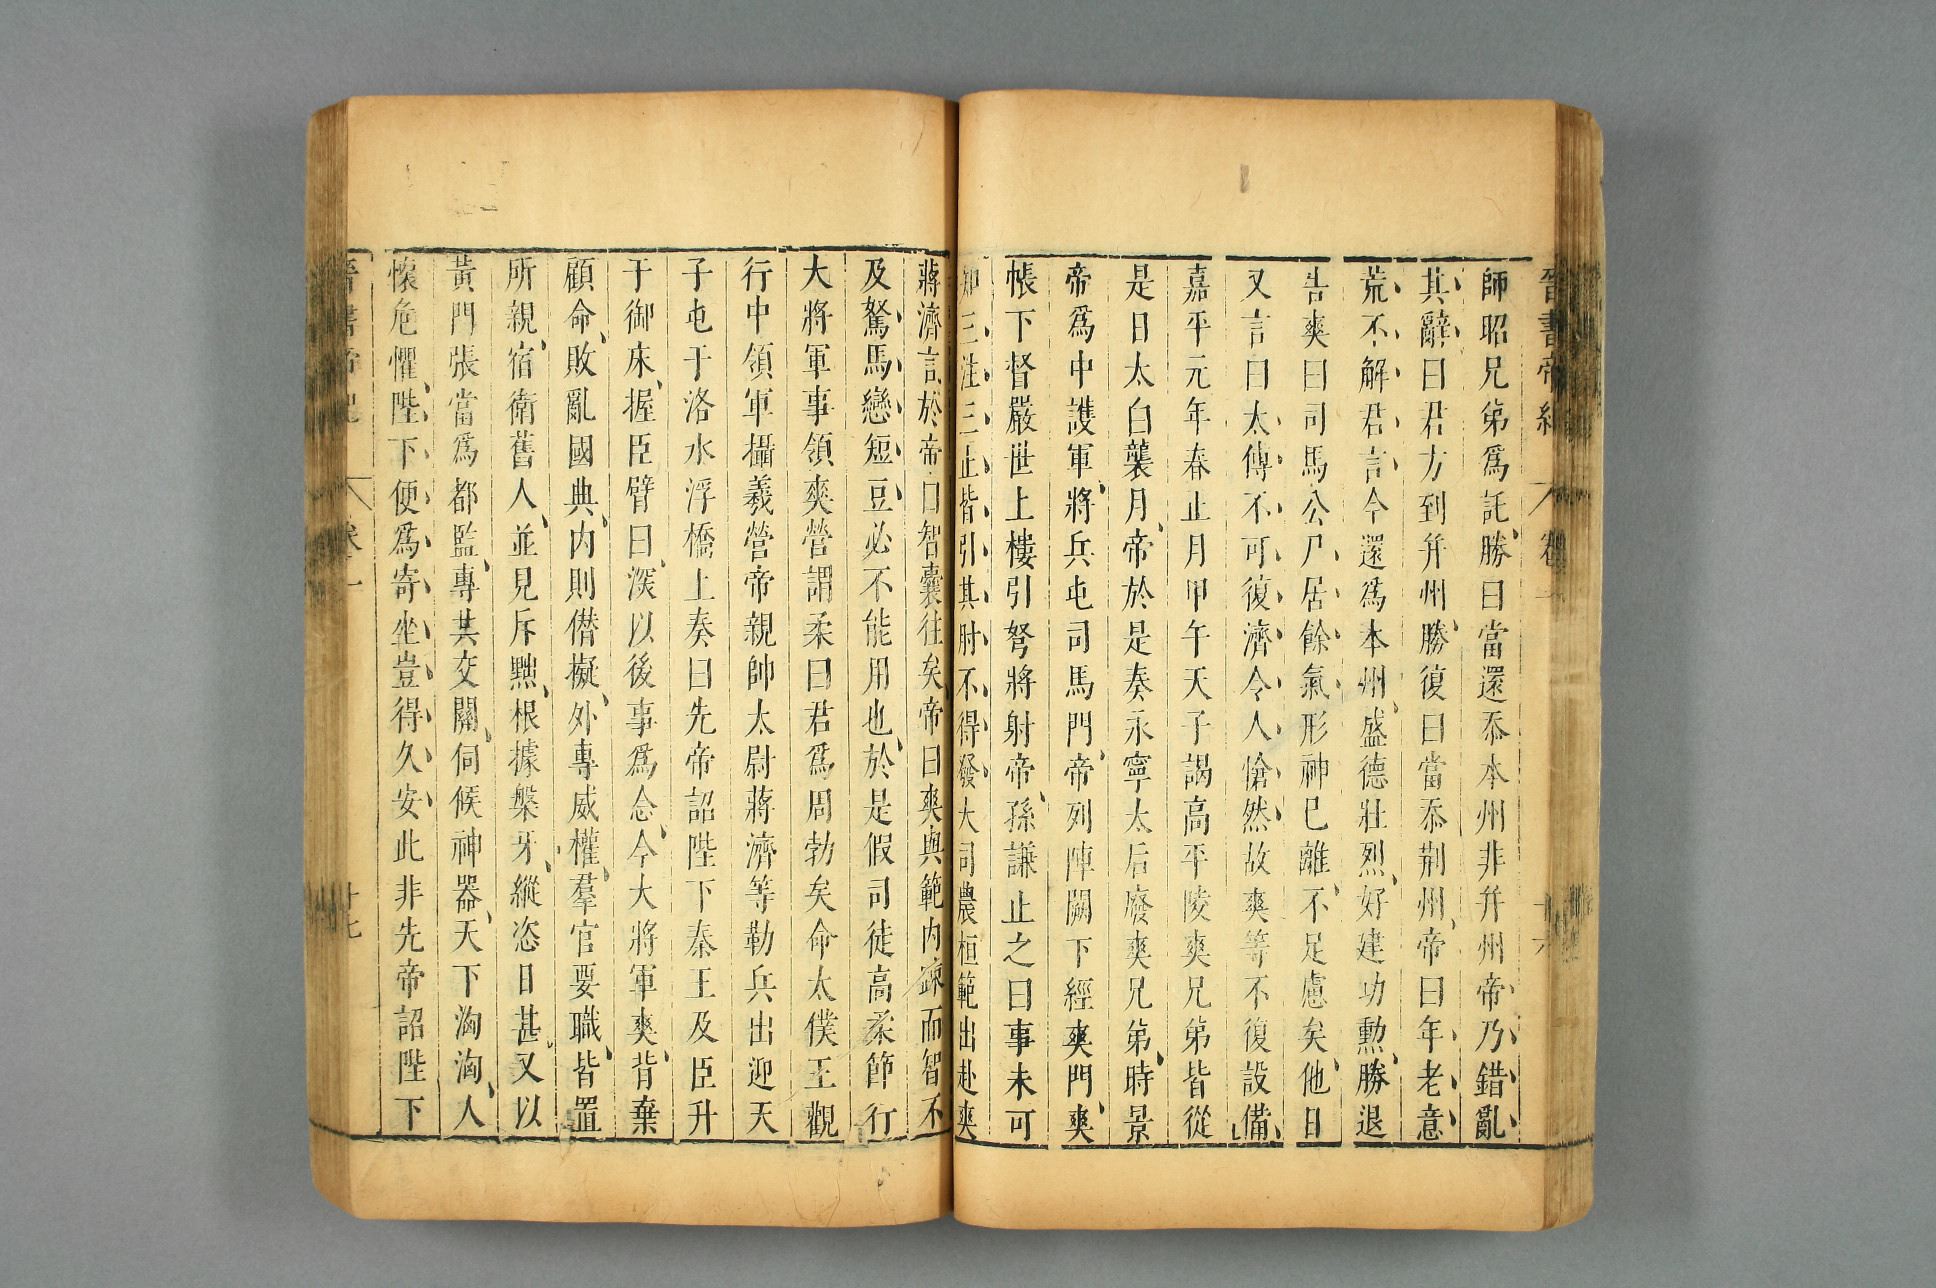 晉書帝紀 卷一 十六
師昭兄弟爲託勝曰當還忝本州非幷州帝乃錯亂
其辭曰君方到幷州勝復曰當忝荆州帝曰年老意
荒不解君言今還爲本州盛德壯烈好建功勲勝退
告爽曰司馬公尸居餘氣形神已離不足慮矣他日
又言曰太傅不可復濟令人愴然故爽等不復設備
嘉平元年春正月甲午天子謁高平陵爽兄弟皆從
是日太白襲月帝於是奏永寧太后廢爽兄弟時景
帝爲中護軍將兵屯司馬門帝列陣闕下經爽門爽
帳下督嚴世上樓引弩將射帝孫謙止之曰事未可
知三注三止皆引其肘不得發大司農桓範出赴爽
蔣濟言於帝曰智囊往矣帝曰爽與範内疎而智不
及駑馬戀短豆必不能用也於是假司徒高柔節行
大將軍事領爽營謂柔曰君爲周勃矣命太僕王觀
行中領軍攝羲營帝親帥太尉蔣濟等勒兵出迎天
子屯于洛水浮橋上奏曰先帝詔陛下秦王及臣升
于御床握臣臂曰深以後事爲念今大將軍爽背棄
顧命敗亂國典内則僣擬外專威權羣官要職皆置
所親宿衛舊人並見斥黜根據槃牙縱恣日甚又以
黃門張當爲都監專共交關伺候神器天下洶洶人
懷危懼陛下便爲寄坐豈得久安此非先帝詔陛下
晉書帝紀 卷一 十七